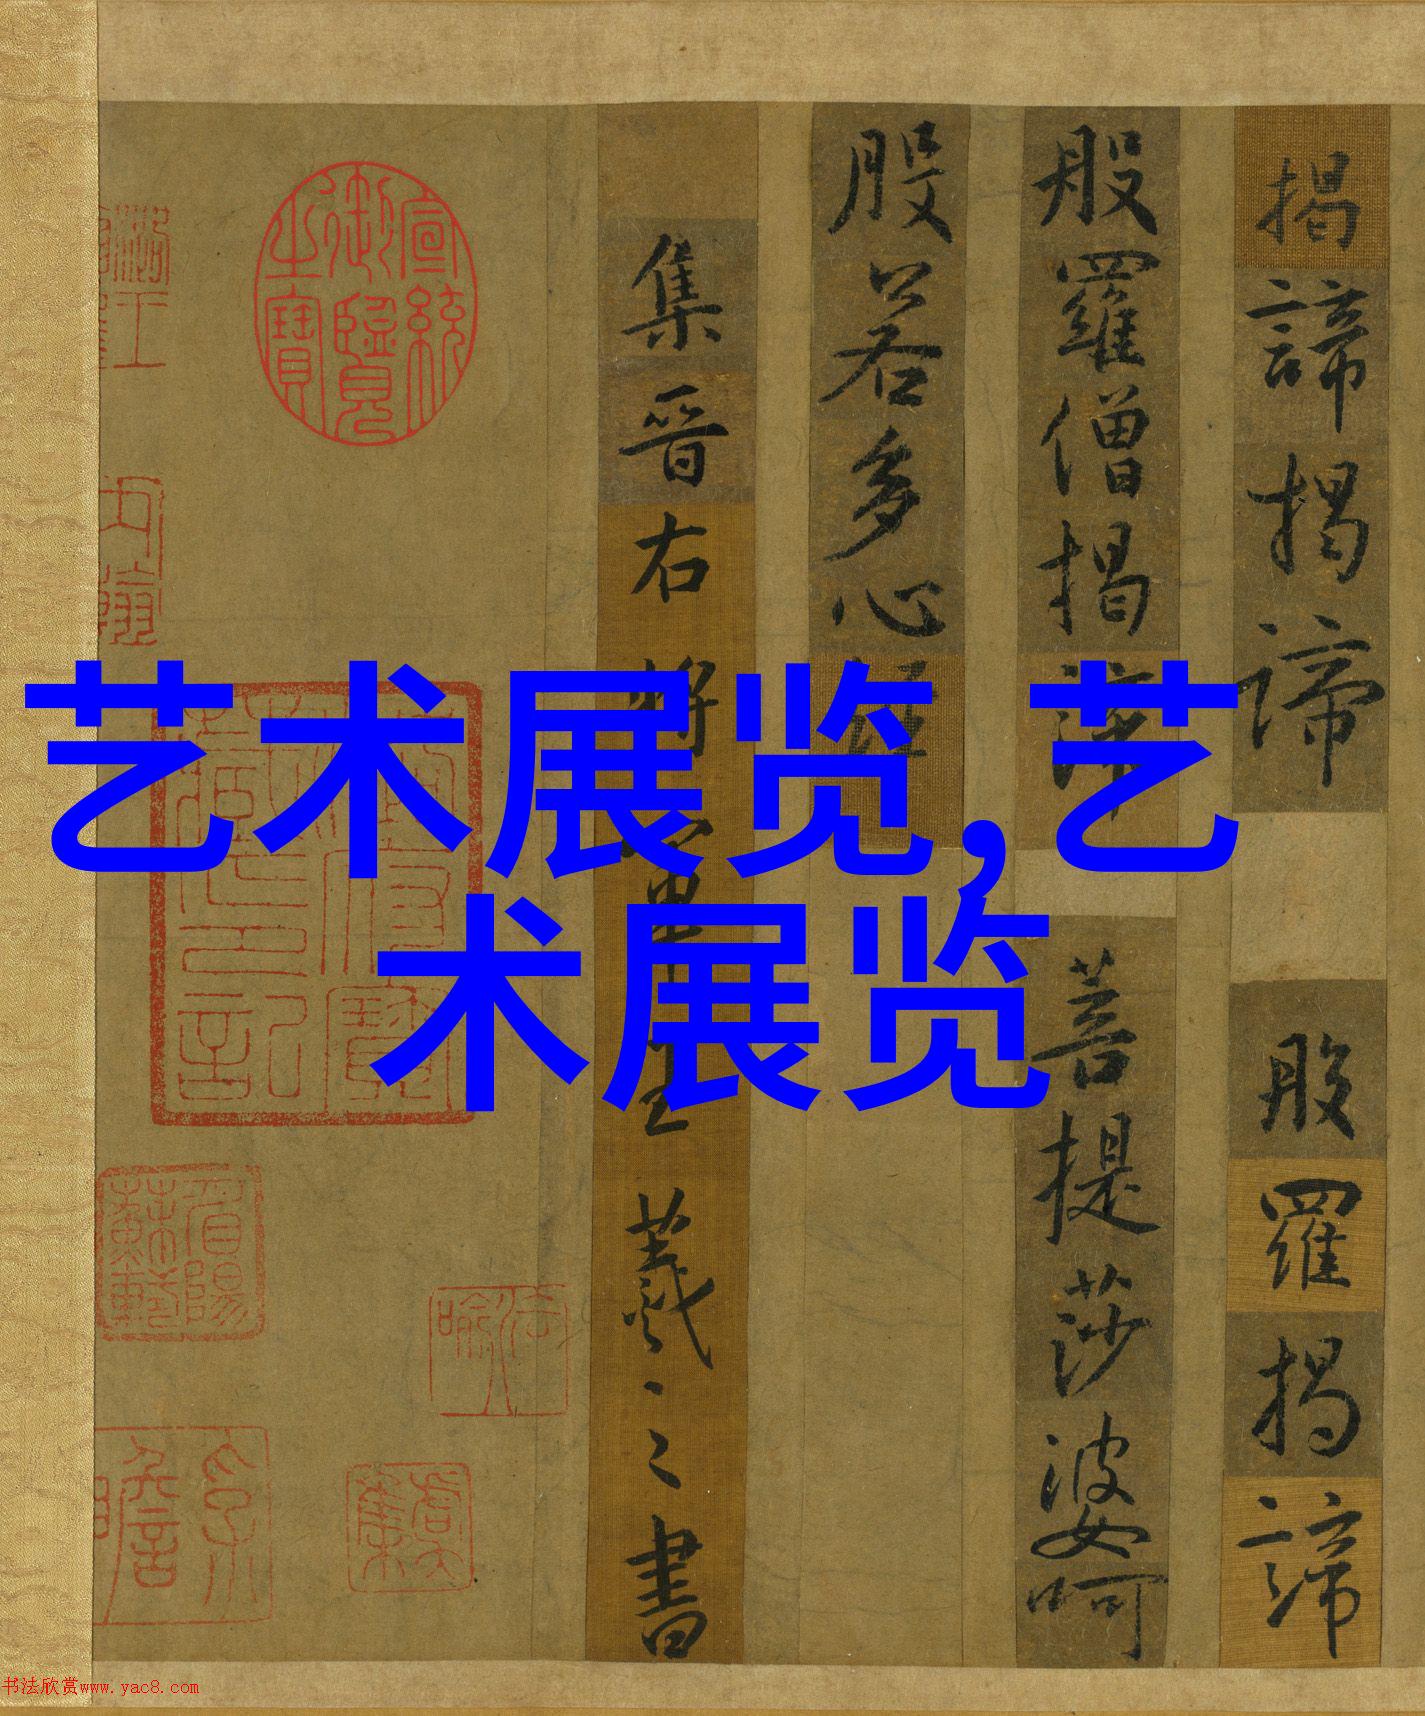 艺术展览,艺
术展览
揭諦揭諦 般羅揭諦
般羅僧揭諦 菩提莎婆呵
般若多心經
集晉右將軍王羲之書
宣統御覽之寶
书法欣赏www.yac8.com